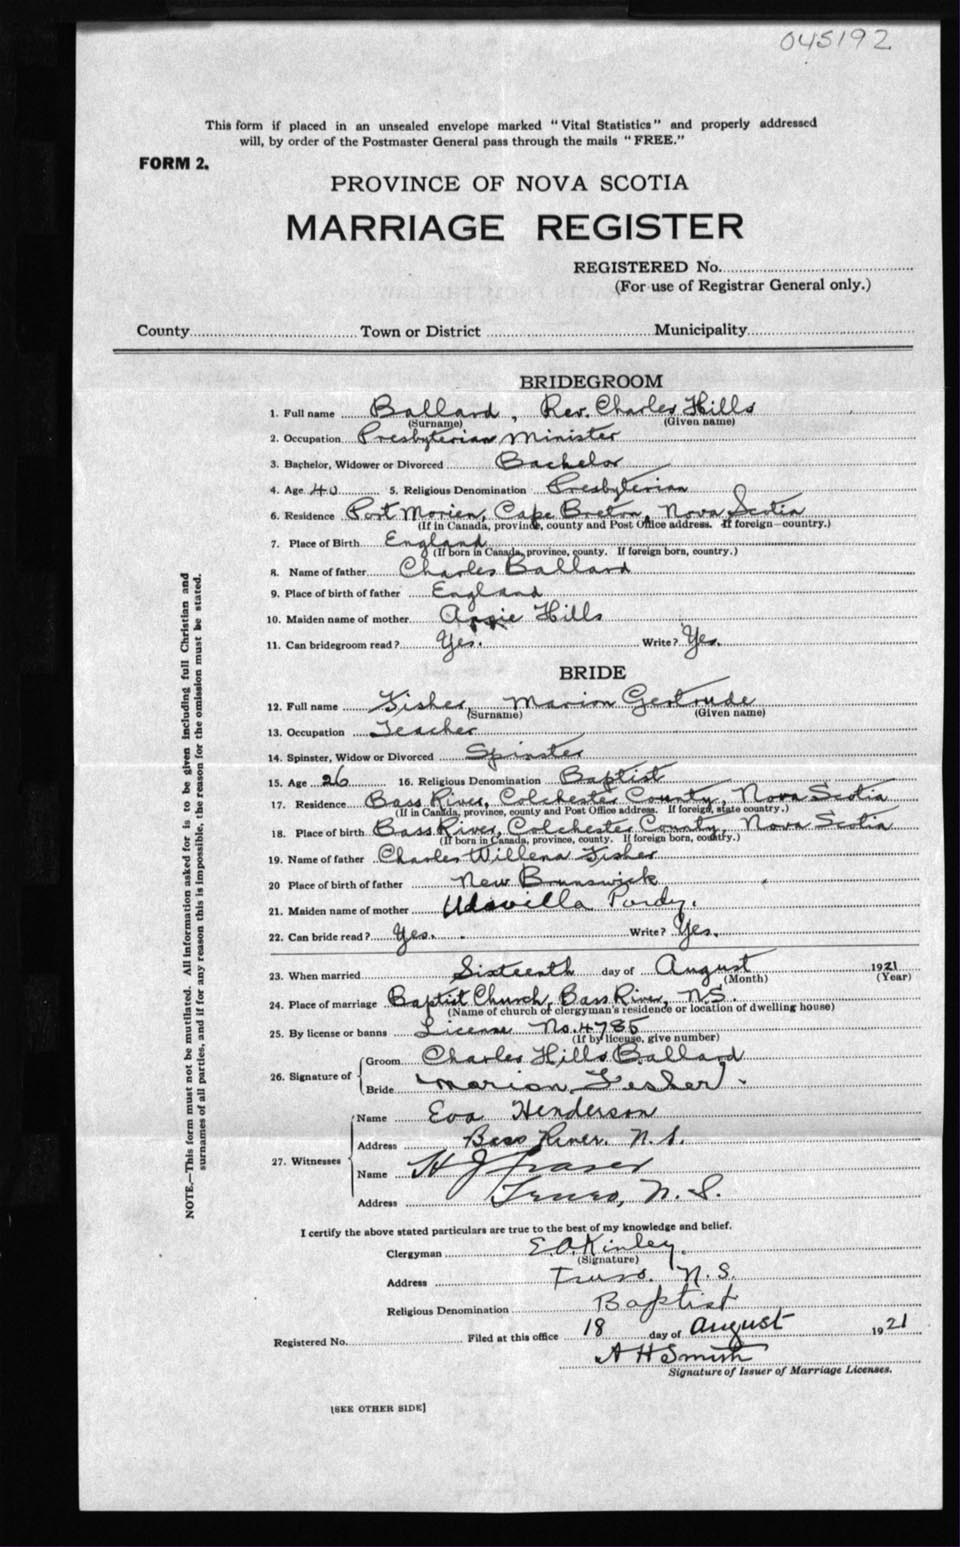 045192
This form if placed in an unsealed envelope marked "Vital Statistics" and properly addressed
will, by order of the Postmaster General pass through the mails "FREE."
FORM 2.
PROVINCE OF NOVA SCOTIA
MARRIAGE REGISTER
REGISTERED No.
(For use of Registrar General only.)
County Town or District Municipality
BRIDEGROOM
1. Full name Ballard, Rev. Charles Hills
(Surname) (Given name)
2. Occupation Presbyterian Minister
3. Bachelor, Widower or Divorced Bachelor
4. Age 40 5. Religious Denomination Presbyterian
6. Residence Port Morien, Cape Breton, Nova Scotia
(If in Canada, province, county and Post Office address. If foreign—country.)
7. Place of Birth England
(If born in Canada, province, county. If foreign born, country.)
8. Name of father Charles Ballard
9. Place of birth of father England
10. Maiden name of mother Hills
11. Can bridegroom read? Yes. Write? Yes.
BRIDE
12. Full name Fisher, Marion Gertrude
(Surname) (Given name)
13. Occupation Teacher
14. Spinster, Widow or Divorced Spinster
15. Age 26 16. Religious Denomination Baptist
17. Residence Bass River, Colchester County, Nova Scotia
(If in Canada, province, county and Post Office address. If foreign, state country.)
18. Place of birth Bass River, Colchester County, Nova Scotia
(If born in Canada, province, county. If foreign born, country.)
19. Name of father Charles Willena Fisher
20 Place of birth of father New Brunswick
21. Maiden name of mother Udavilla Purdy.
22. Can bride read? Yes. Write? Yes.
23. When married Sixteenth day of August 1921
(Month) (Year)
24. Place of marriage Baptist Church, Bass River, N.S.
(Name of church of clergyman's residence or location of dwelling house)
25. By license or banns License No. 4785
(If by license, give number)
26. Signature of Groom Charles Hills Ballard
Bride Marion Fisher
27. Witnesses Name Eva Henderson
Address Bass River. N.S.
Name H J Fraser
Address Truro, N.S.
I certify the above stated particulars are true to the best of my knowledge and belief.
Clergyman E.A. Kinley.
(Signature)
Address Truro. N.S.
Religious Denomination Baptist
Registered No. Filed at this office 18 day of August 1921
A H Smith
Signature of Issuer of Marriage Licenses.
[SEE OTHER SIDE]
NOTE.—This form must not be mutilated. All information asked for is to be given including full Christian and
surnames of all parties, and if for any reason this is impossible, the reason for the omission must be stated.